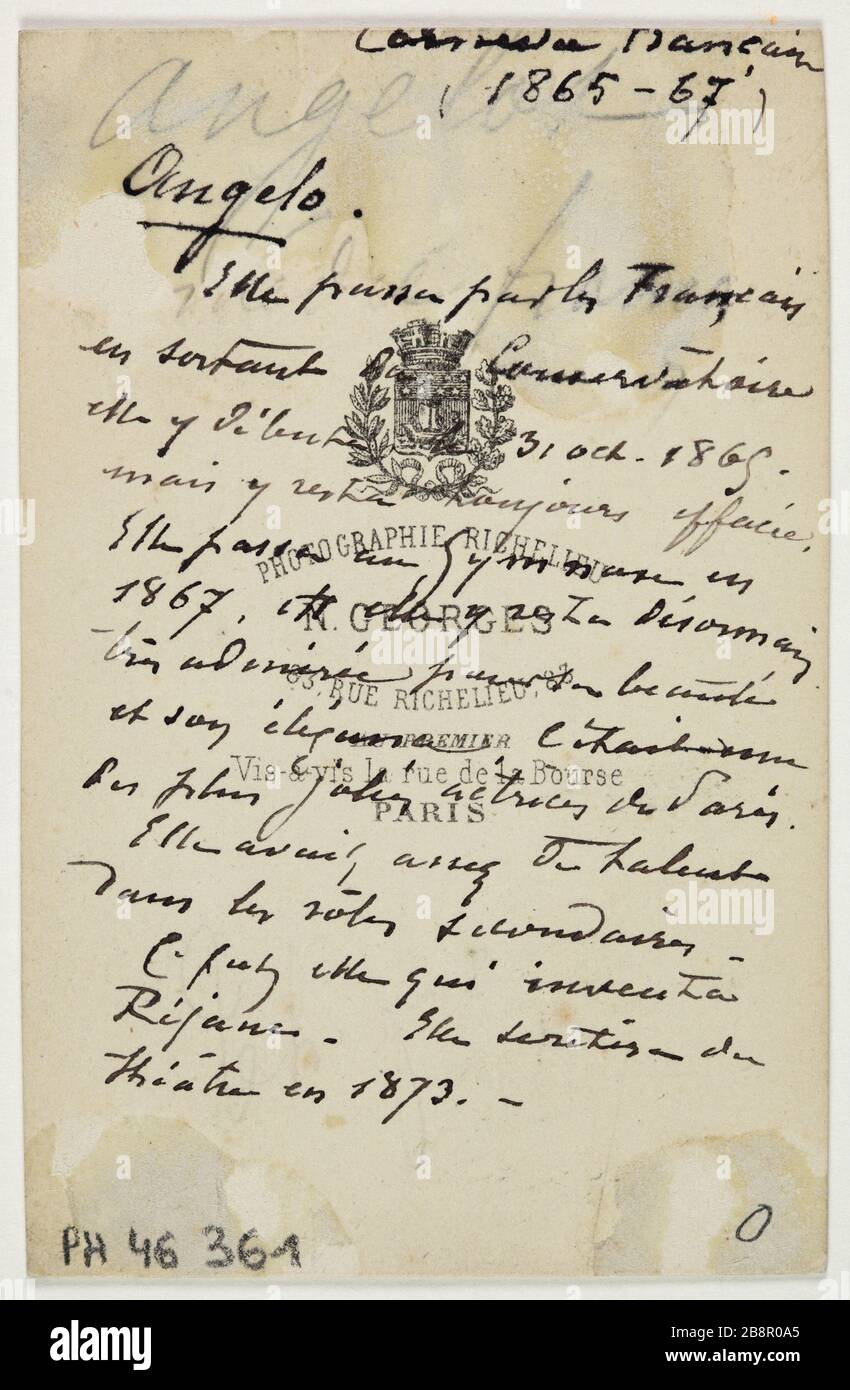 Comédie Française
(1865-67)
Angelo
Angelo.
Elle passa par les Français
en sortant du Conservatoire
elle y débuta le 31 oct. 1865.
mais y resta toujours effacée.
Elle passa au Gymnase en
1867, et elle y resta désormais
très admirée pour sa beauté
et son élégance c'était une
des plus jolies actrices de Paris.
Elle avait assez de talent
dans les rôles secondaires -
Ce fut elle qui inventa
Réjane - Elle se retira du
théâtre en 1873. -
PHOTOGRAPHIE RICHELIEU
N. GEORGES
83, RUE RICHELIEU, 83
AU PREMIER
Vis-à-vis la rue de la Bourse
PARIS
PH 46 361
0
alamy
Image ID: 2B8R0A5
www.alamy.com